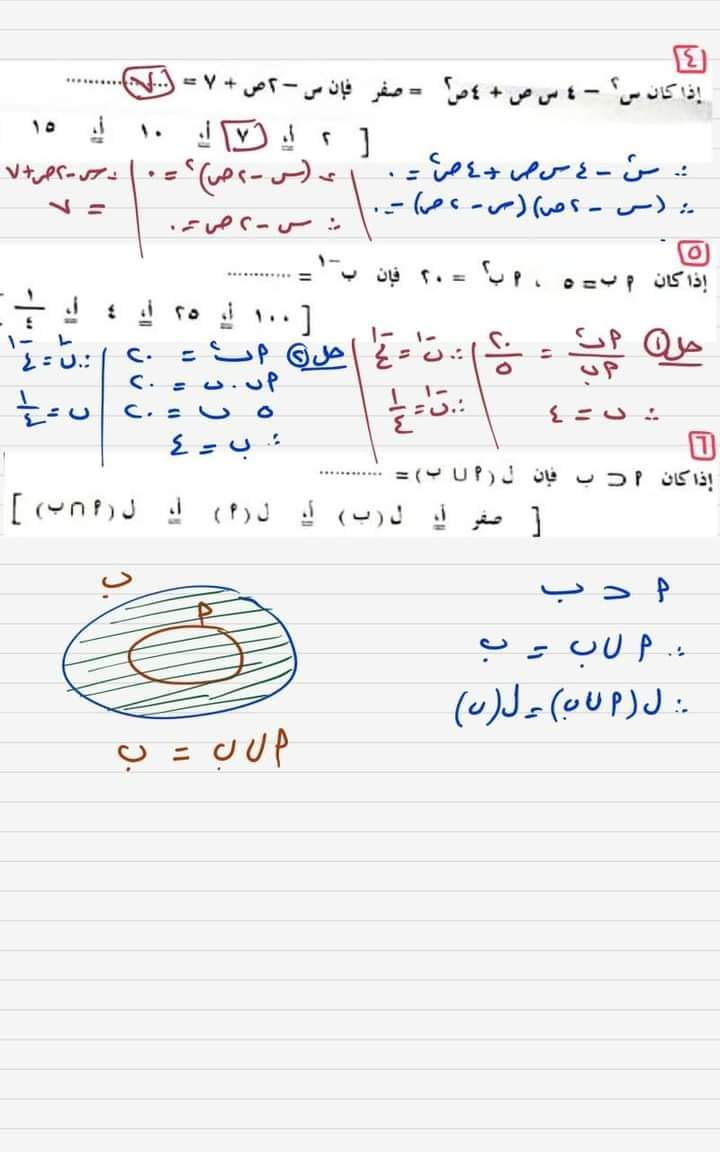 ٤
إذا كان س٢ – ٤ س ص + ٤ص٢ = صفر فإن س – ٢ص + ٧ = ...٧...
[ ٢ أ، ٧ أ، ١٠ أ، ١٥
∴ س٢ – ٤ س ص + ٤ص٢ = ٠
∴ (س – ٢ص)(س – ٢ص) = ٠
∴ (س – ٢ص)٢ = ٠
∴ س – ٢ص = ٠
∴ س – ٢ص + ٧
= ٧
٥
إذا كان ٩ ب = ٥ ، ٩ ب٢ = ٢٠ فإن ب–١ = ............
[ ١٠٠ أ، ٢٥ أ، ٤ أ، ١/٤
حل ١ ٩ب٢/٩ب = ٢٠/٥
∴ ب = ٤
∴ ب–١ = ٤–١
∴ ب–١ = ١/٤
حل ٢ ٩ب٢ = ٢٠
٩ب . ب = ٢٠
٥ ب = ٢٠
∴ ب = ٤
∴ ب–١ = ٤–١
ب = ١/٤
٦
إذا كان ٩ ⊂ ب فإن ل (٩ ∪ ب) = ............
[ صفر أ، ل (ب) أ، ل (٩) أ، ل (٩ ∩ ب) ]
٩ ⊂ ب
∴ ٩ ∪ ب = ب
∴ ل(٩ ∪ ب) = ل(ب)
ب
٩
٩ ∪ ب = ب